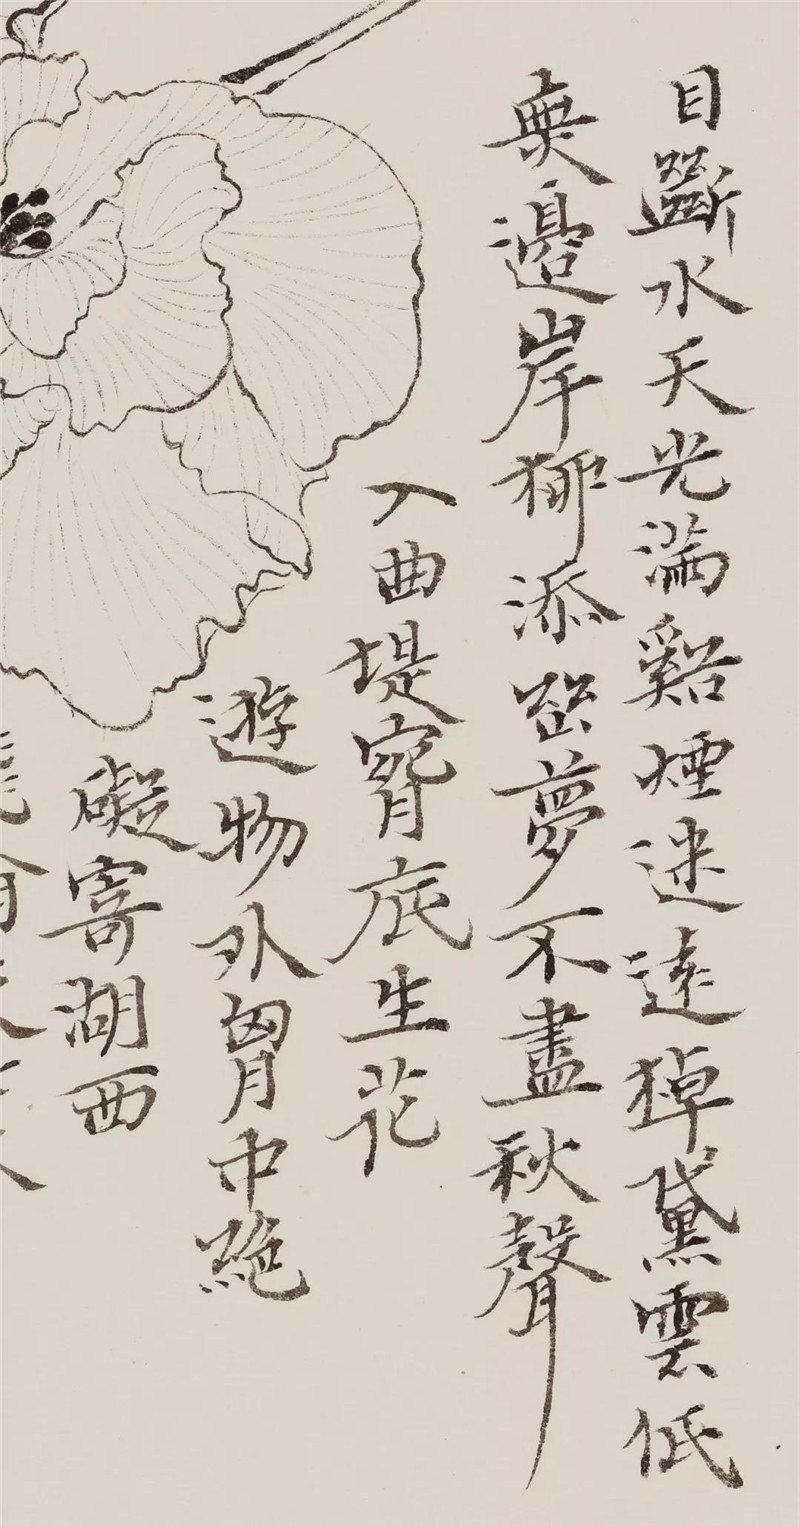 目斷水天光滿谿煙迷遠棹黛雲低
無邊岸柳添幽夢不盡秋聲
入曲堤腕底生花
遊物外胷中絶
礙寄湖西